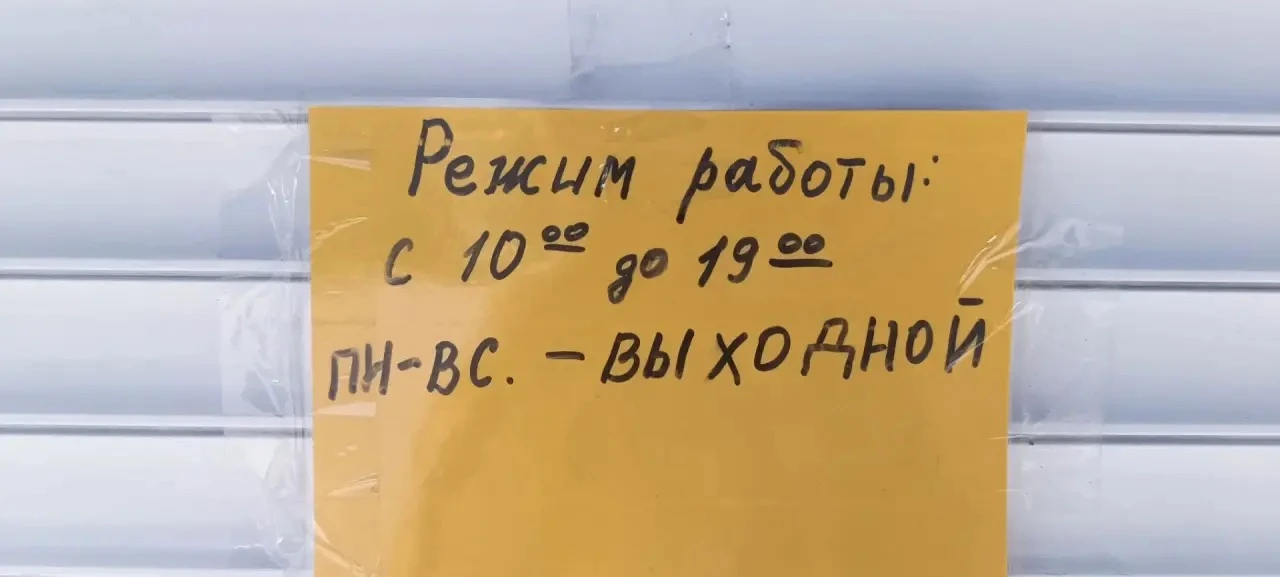 Режим работы:
с 10⁰⁰ до 19⁰⁰
ПН-ВС. - ВЫХОДНОЙ